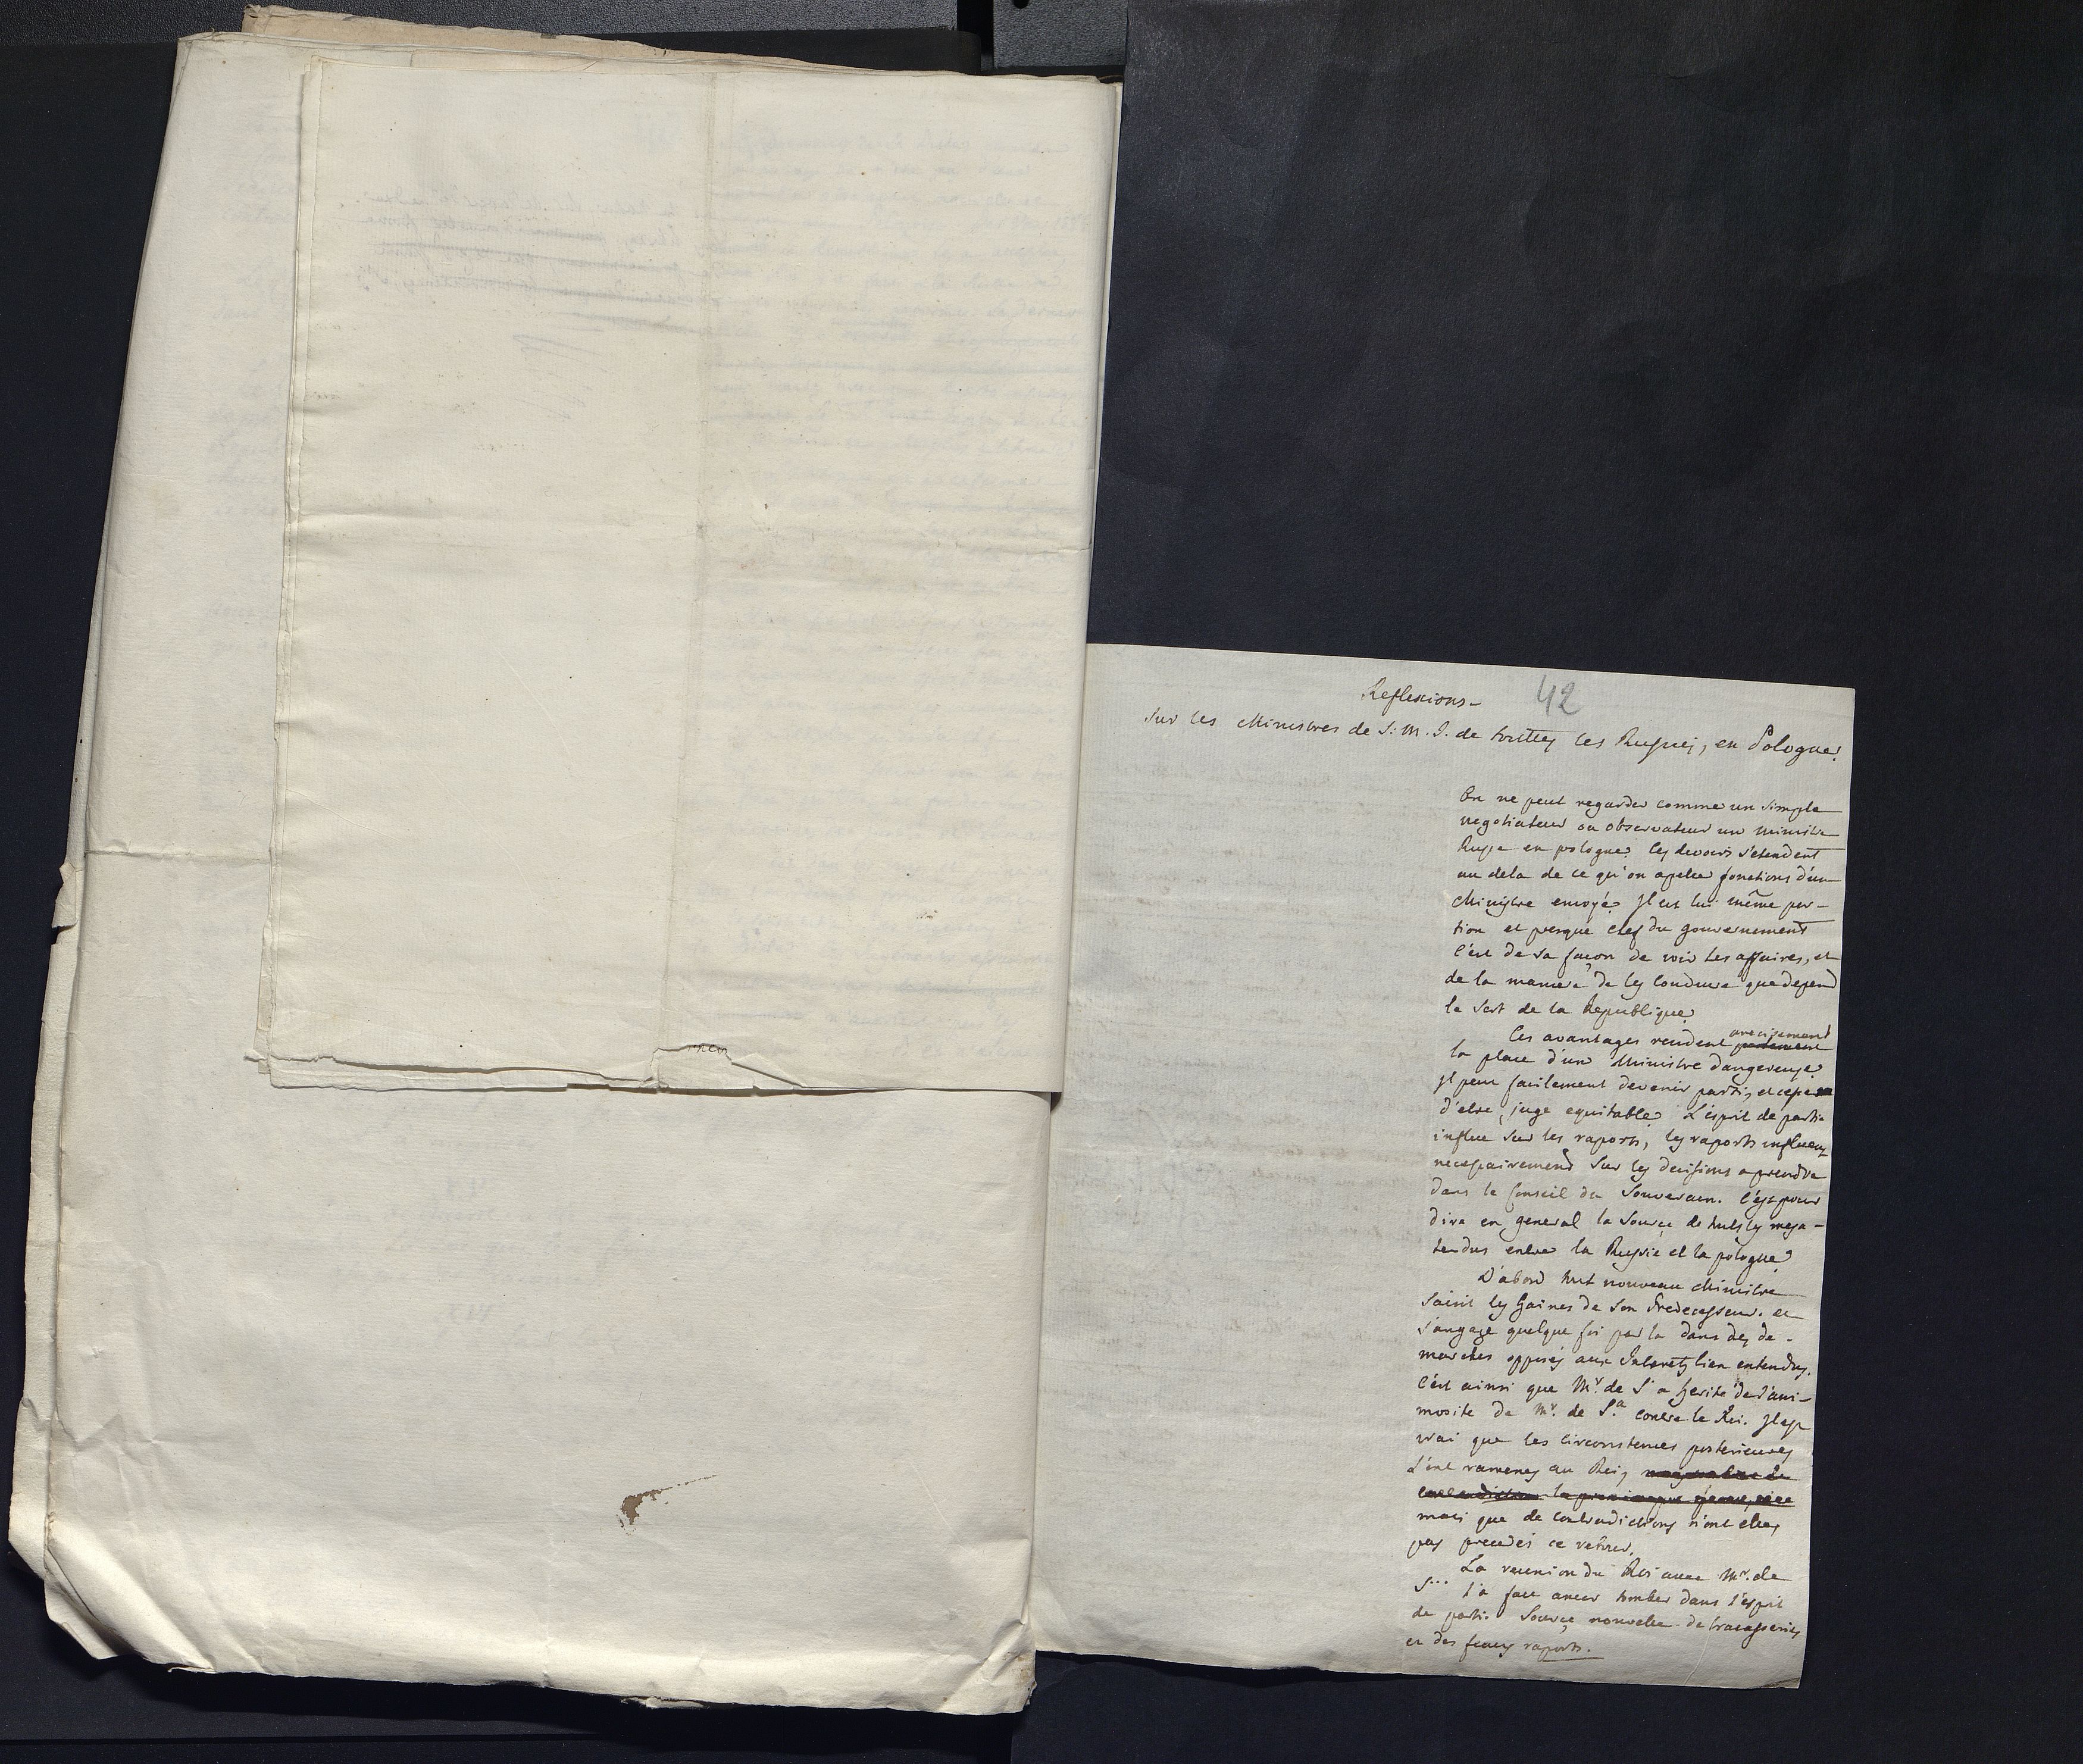 Reflexions
42
Sur les Ministres de S: M. I. de touttes les Russies, en Pologne.
On ne peut regarder comme un simple
negotiateur ou observateur un ministre
Russe en pologne. Ses devoirs s'etendent
au dela de ce qu'on apelle fonctions d'un
Ministre envoyé. Il est lui même por-
tion et presque chef du gouvernement
C'est de sa façon de voir les affaires, et
de la maniere de les conduire que depend
le sort de la Republique.
precisement
Ces avantages rendent
la place d'un Ministre dangereuse.
Il peut facilement devenir partis, et cesser
d'etre juge equitable. L'esprit de partie
influe sur les raports, les raports influent
necessairement sur les decisions a prendre
dans le Conseil du Souverain. C'est pour
dire en general la source de touts les mesa-
tendus entre la Russie et la pologne.
D'abord tout nouveau Ministre
saisit les haines de son Predecesseur. et
s'engage quelque foi par la dans des de-
marches opposés aux Interets bien entendus.
C'est ainsi que Mr. de S a herité de l'ani-
mosite de Mr. de S.a contre le Roi. Il est
vrai que les circonstences posterieures
l'ont ramenés au Roi,
mais que de contradictions n'ont elles
pas precedés ce retour.
La reunion du Roi avec Mr. de
S... l'a fait encor tomber dans l'esprit
de parti. Source nouvelle de tracasseries
et des faux raports.